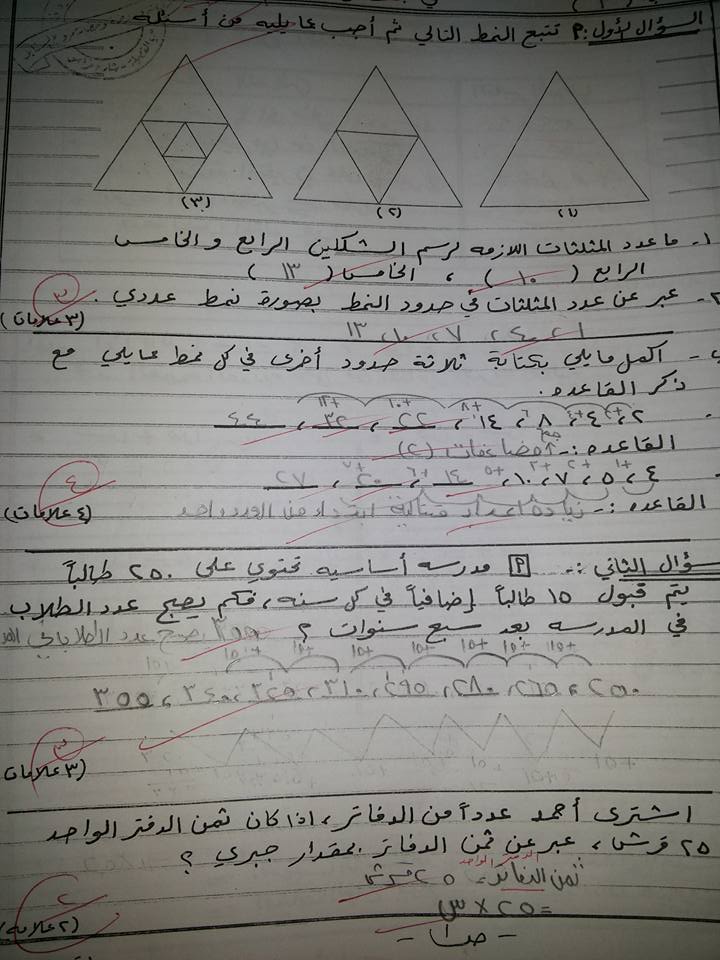 السؤال الأول: P تتبع النمط التالي ثم أجب عما يليه من أسئلة
(١) (٢) (٣)
١- ما عدد المثلثات اللازمه لرسم الشكلين الرابع والخامس
الرابع ( ١٠ ) ، الخامس ( ١٣ )
٢- عبر عن عدد المثلثات في حدود النمط بصورة نمط عددي .
٣
(٣ علامات)
١، ٤، ٧، ١٠، ١٣
ب- اكمل مايلي بكتابة ثلاثة حدود أخرى في كل نمط مما يلي مع
ذكر القاعده.
+٨ +١٠
٢، ٤، ٨، ١٤، ٢٢، ٣٢، ٤٤
القاعده :- مضاعفات (٢)
+١ +٢ +٣ +٥ +٦ +٧
٤، ٥، ٧، ١٠، ١٤، ٢٠، ٢٧
٤
القاعده :- زيادة اعداد متتالية ابتداء من العدد واحد
(٤ علامات)
سؤال الثاني :- P مدرسه أساسيه تحتوي على ٢٥٠ طالباً
يتم قبول ١٥ طالباً إضافياً في كل سنه، فكم يصبح عدد الطلاب
في المدرسه بعد سبع سنوات ؟ ٣٥٥ يصبح عدد الطلاب في
+١٥ +١٥ +١٥ +١٥ +١٥ +١٥ +١٥
٢٥٠، ٢٦٥، ٢٨٠، ٢٩٥، ٣١٠، ٣٢٥، ٣٤٠، ٣٥٥
٣
(٣ علامات
اشترى أحمد عدداً من الدفاتر، اذا كان ثمن الدفتر الواحد
٢٥ قرش، عبر عن ثمن الدفاتر بمقدار جبري ؟
الدفتر الواحد
ثمن الدفاتر = ٢٥ قرش
= ٢٥ × س
٢
(٢ علامه)